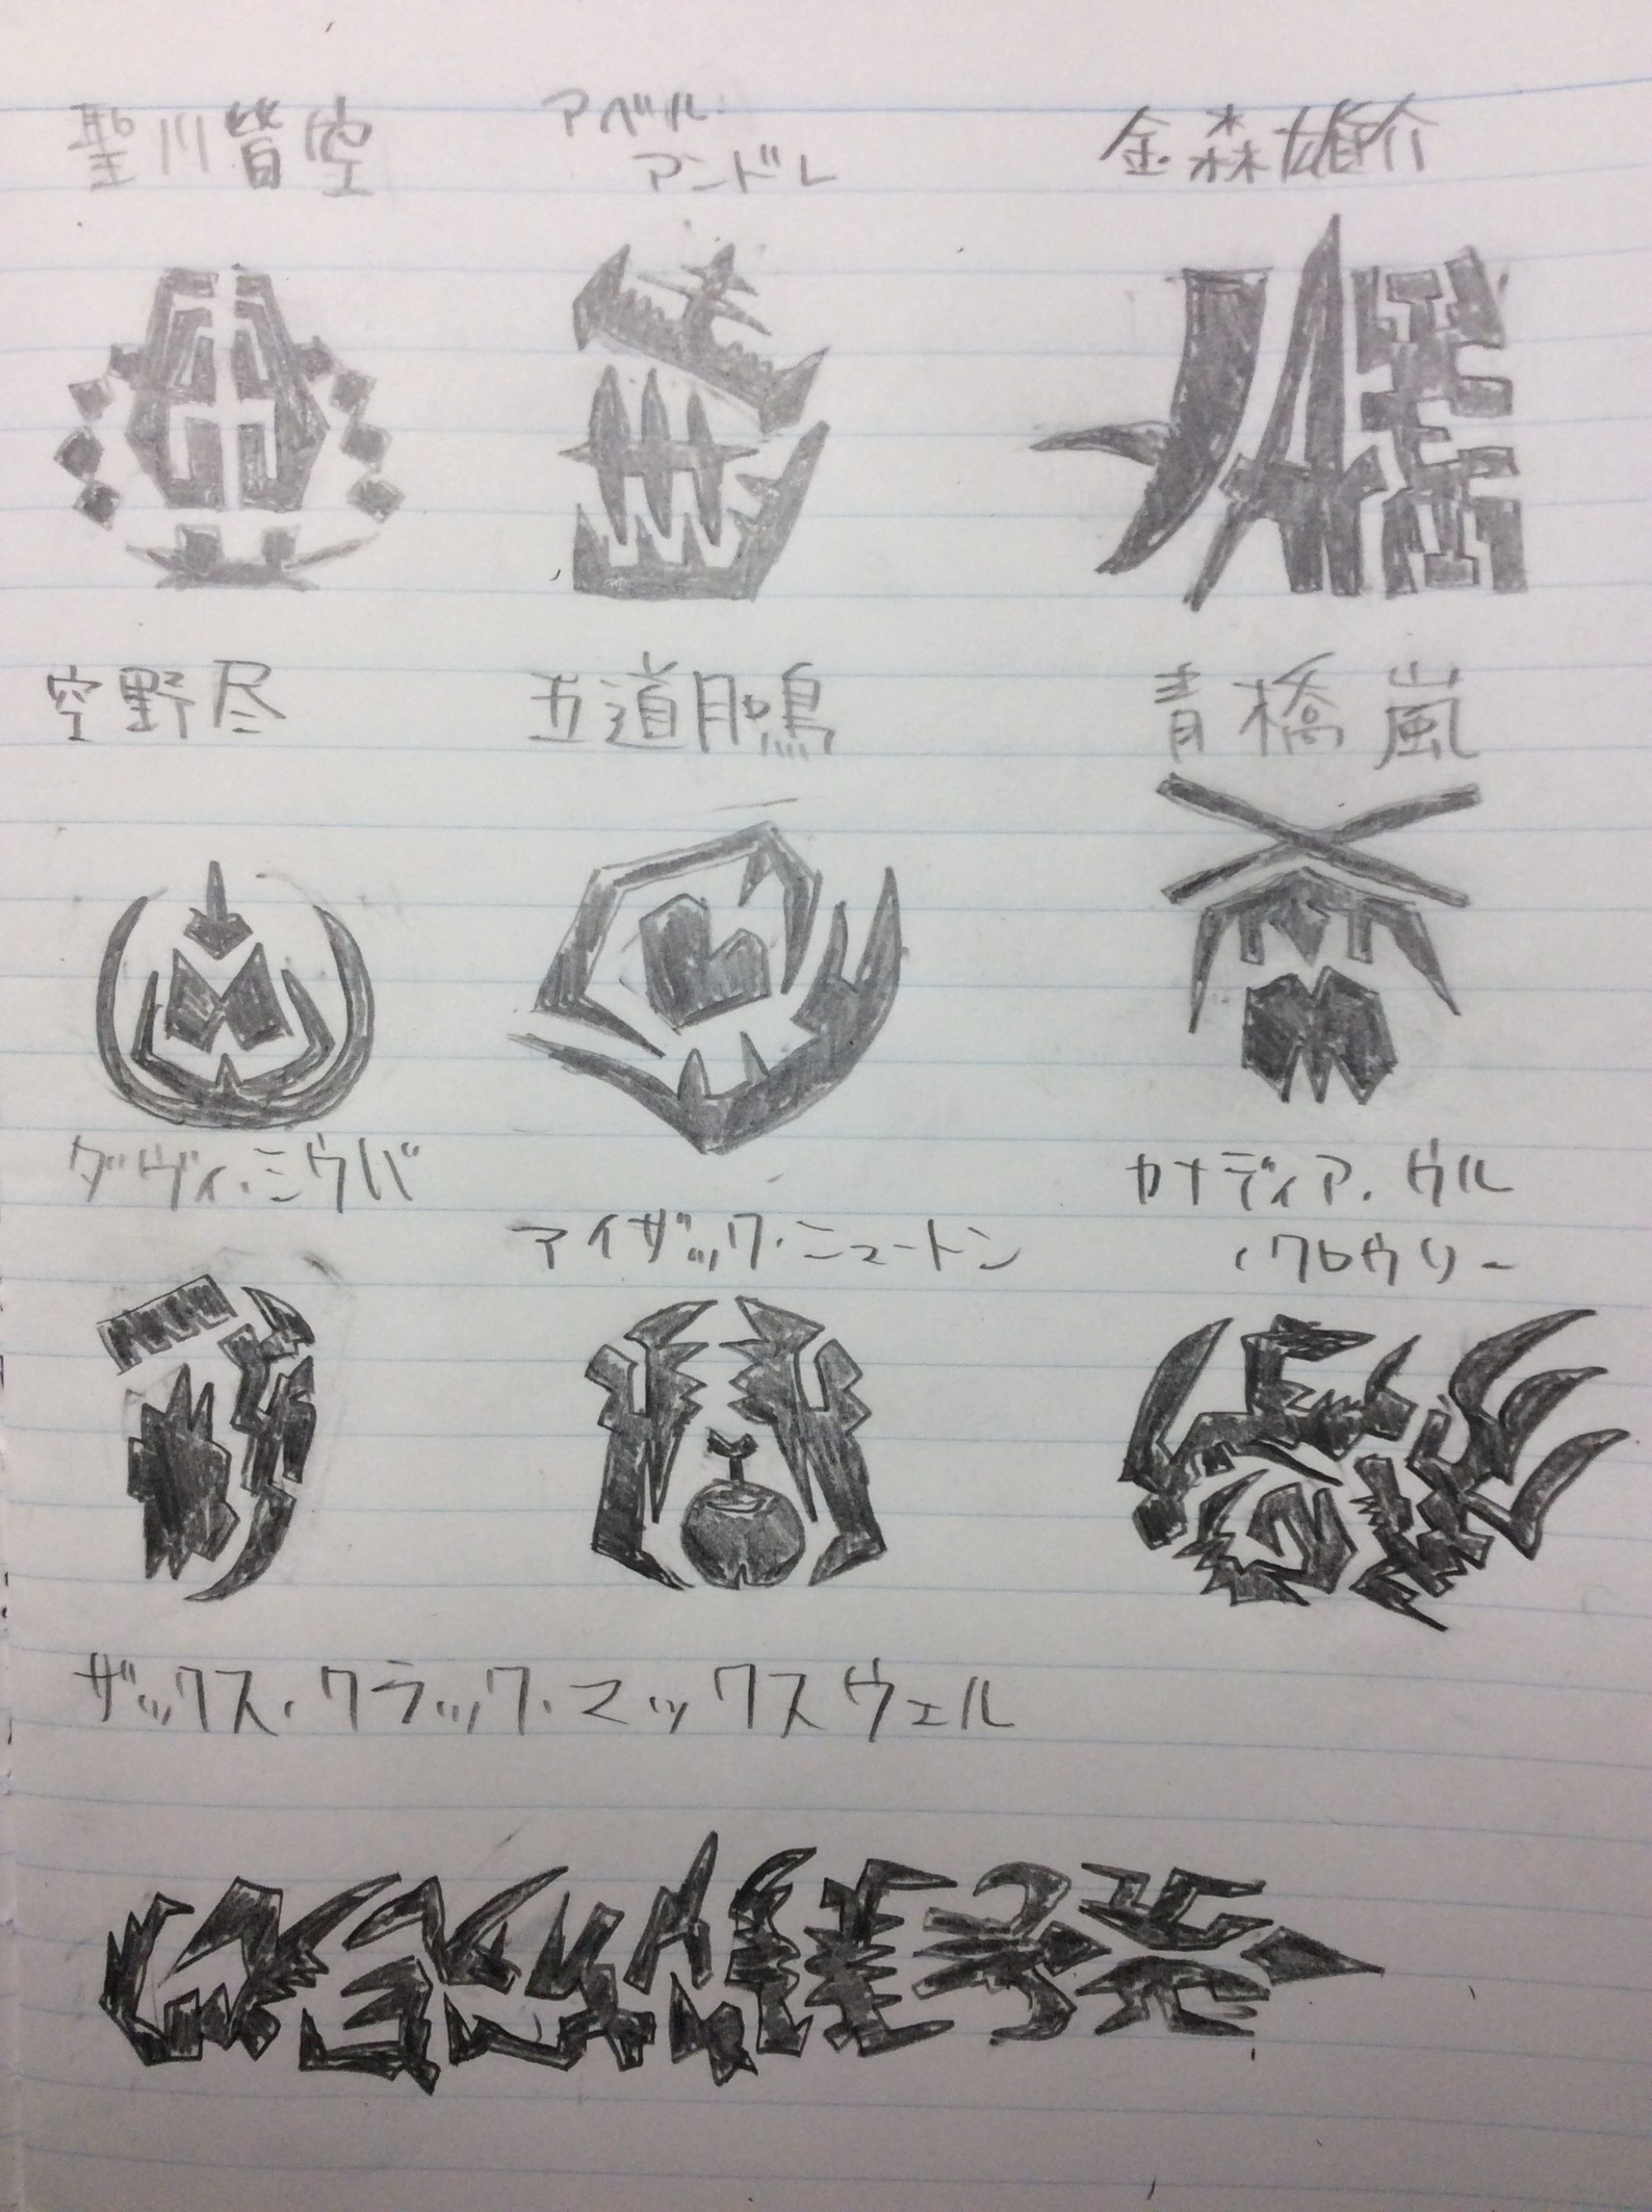 聖川皆空
アベル・
アンドレ
金森雄介
空野尽
五道月鳴
青橋嵐
ダヴィ・シウバ
アイザック・ニュートン
カナディア・ウル
・クロウリー
ザックス・クラック・マックスウェル